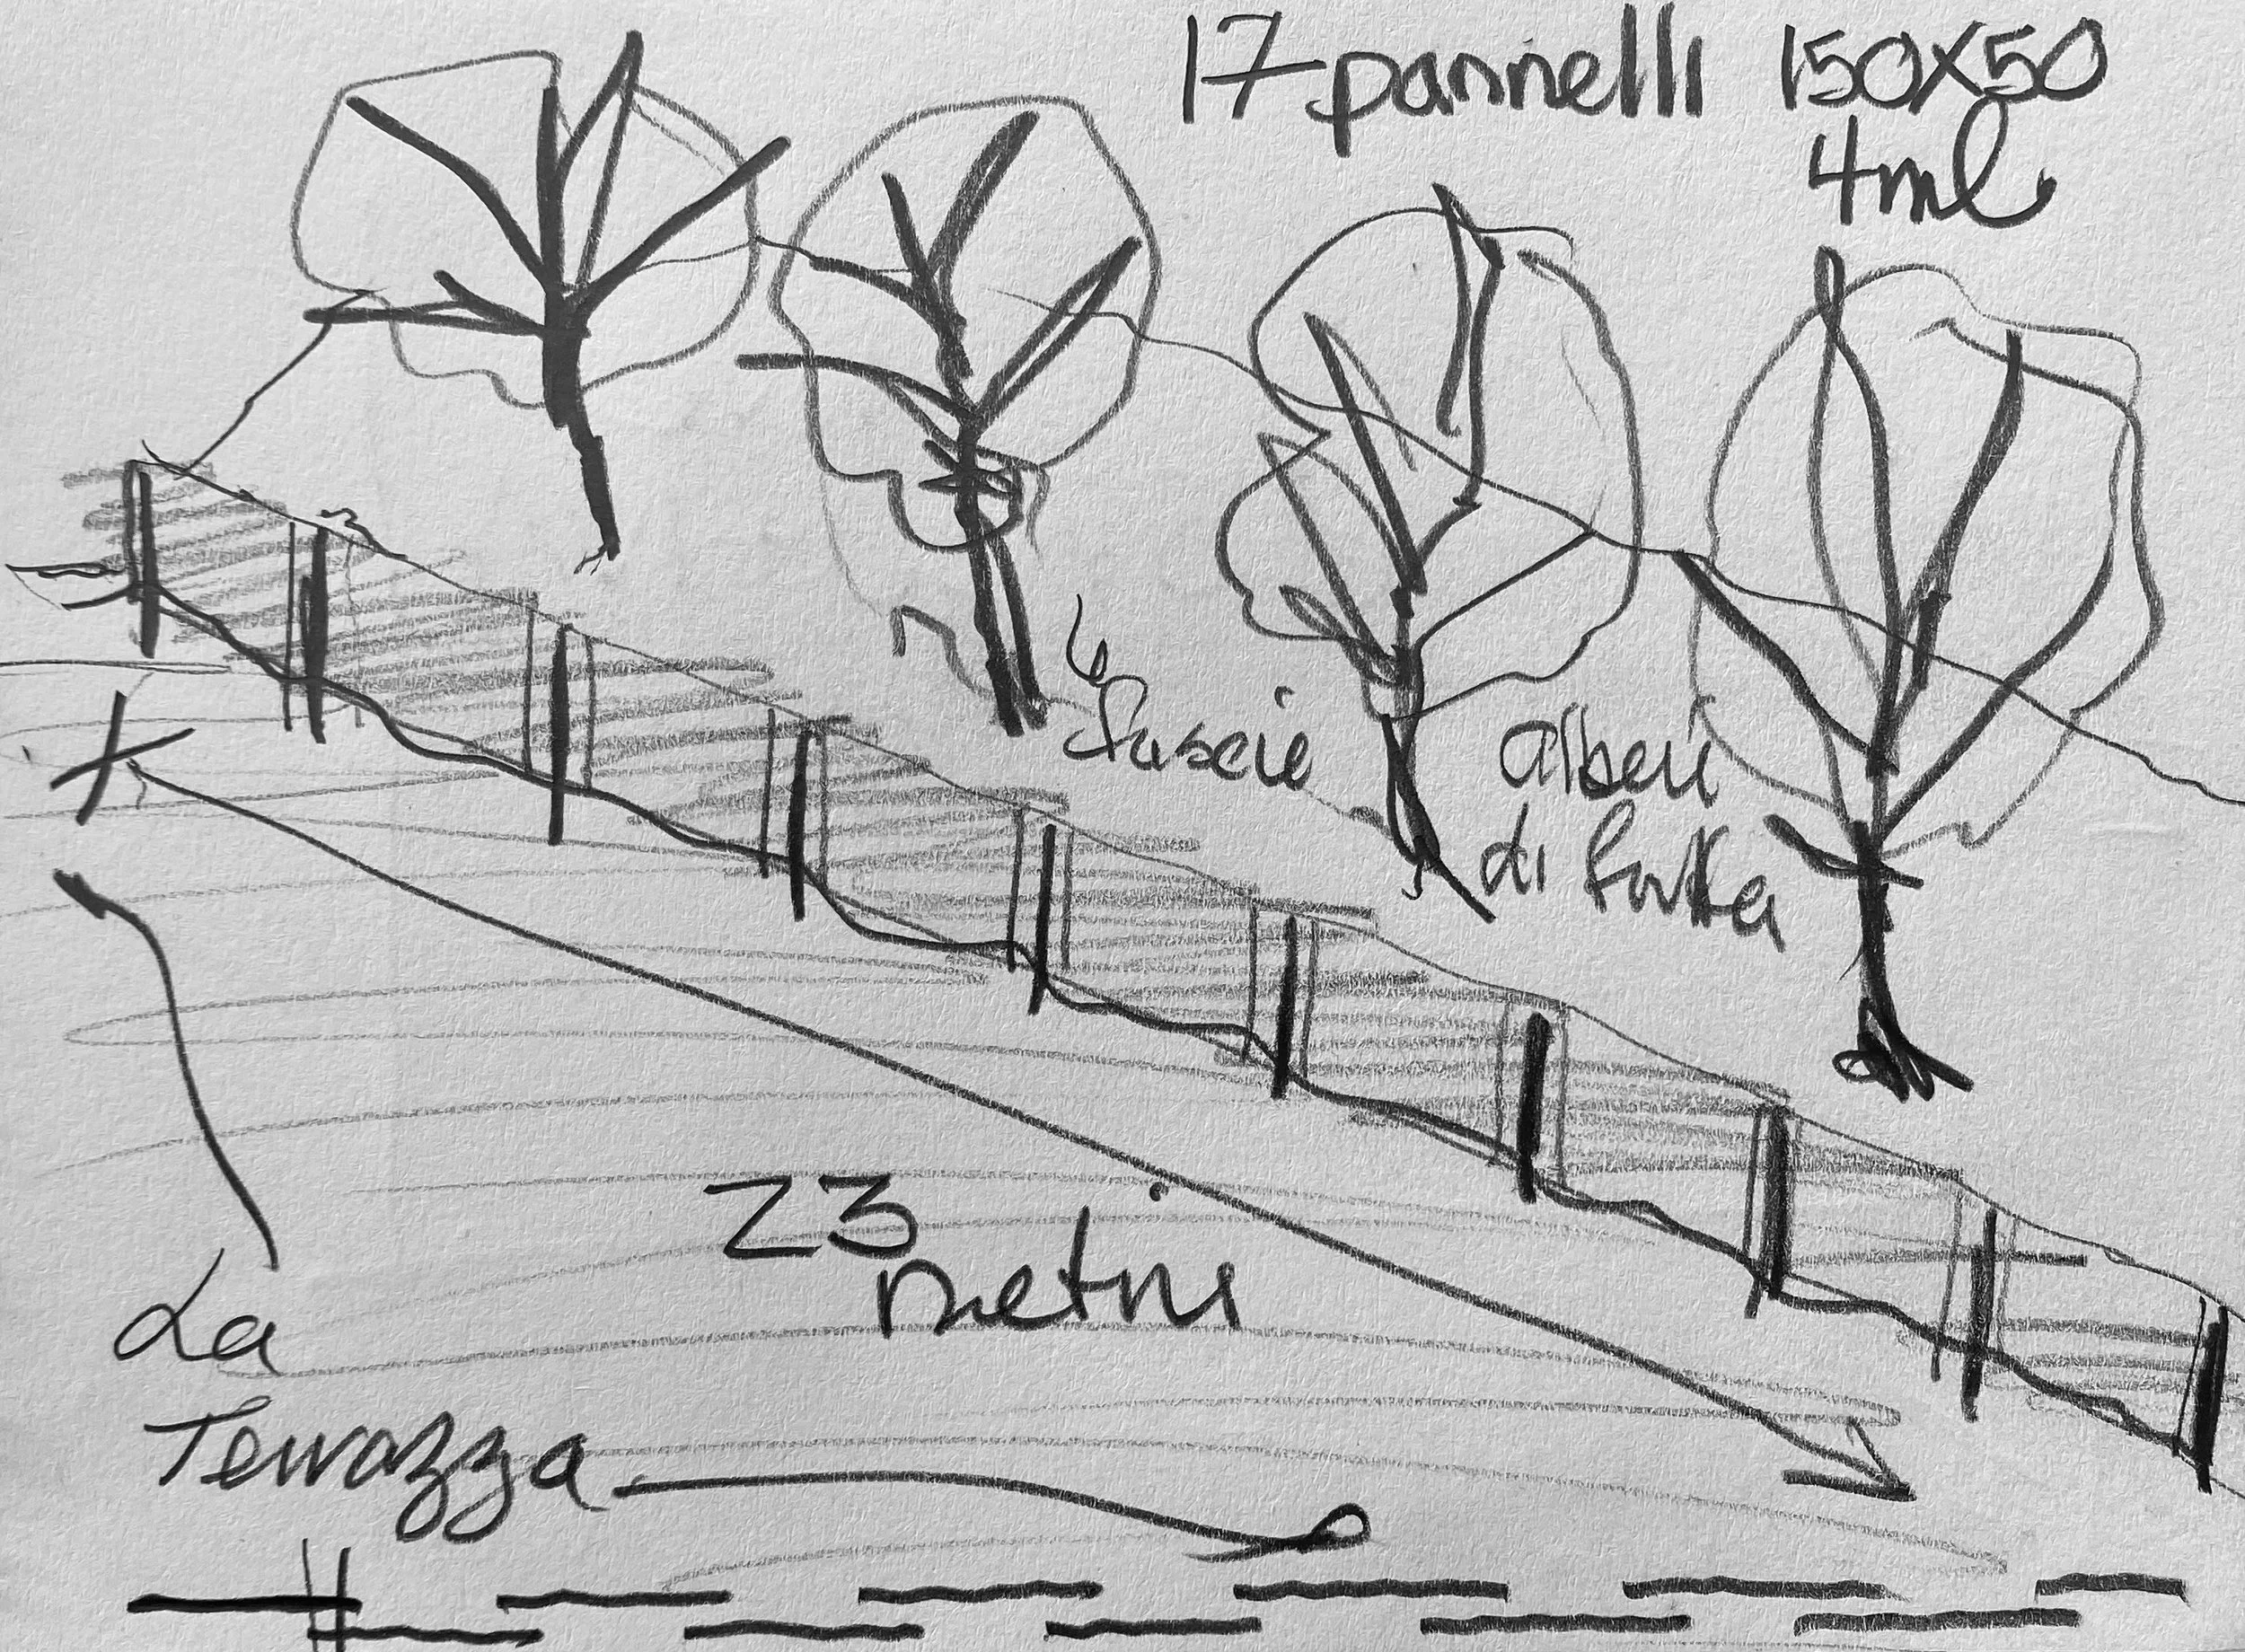 17 pannelli 150x50
4ml
fascie
alberi
di frutta
23
metri
La
Terrazza